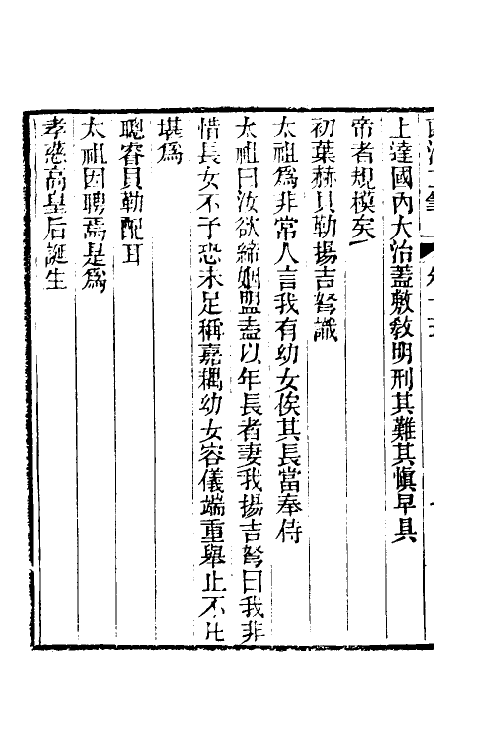 上達國內大治蓋敷敎明刑其難其愼早具
帝者規模矣
初葉赫貝勒揚吉砮識
太祖爲非常人言我有幼女俟其長當奉侍
太祖曰汝欲締姻盟盍以年長者妻我揚吉砮曰我非
惜長女不予恐未足稱嘉耦幼女容儀端重舉止不凡
堪爲
聰睿貝勒配耳
太祖因聘焉是爲
孝慈高皇后誕生